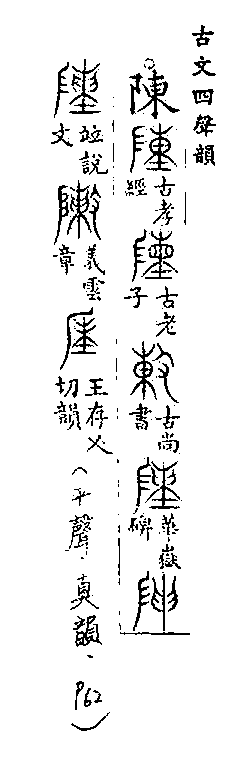 古文四聲韻
陳 古孝經 古老子 古尚書 華嶽碑
並說文 義雲章 王存乂切韻(平聲.真韻.P62)